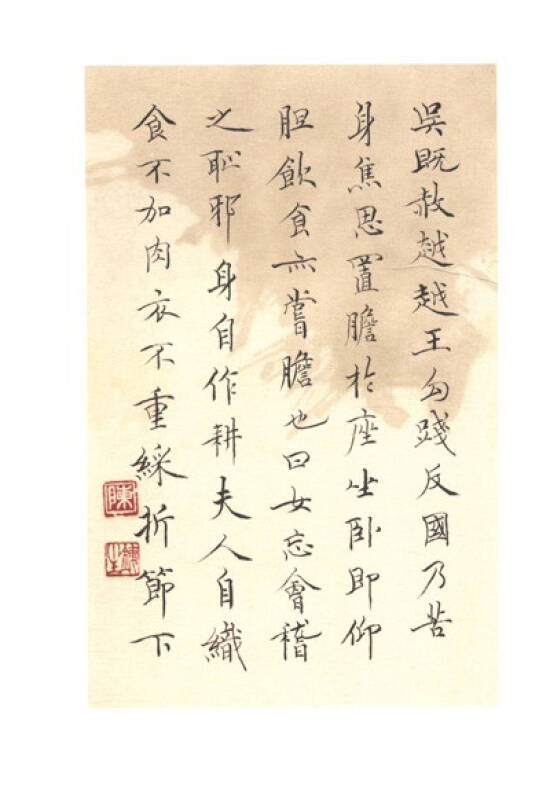 吳既赦越越王勾踐反國乃苦
身焦思置膽於座坐臥即仰
胆飲食亦嘗膽也曰女忘會稽
之恥邪身自作耕夫人自織
食不加肉衣不重綵折節下
陳